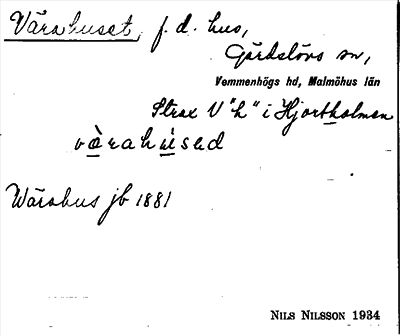 Värahuset, f. d. hus,
Gärdslövs sn,
Vemmenhögs hd, Malmöhus län
Strax V "h" i Hjortholmen
värahused
Wärahus jb 1881
NILS NILSSON 1934